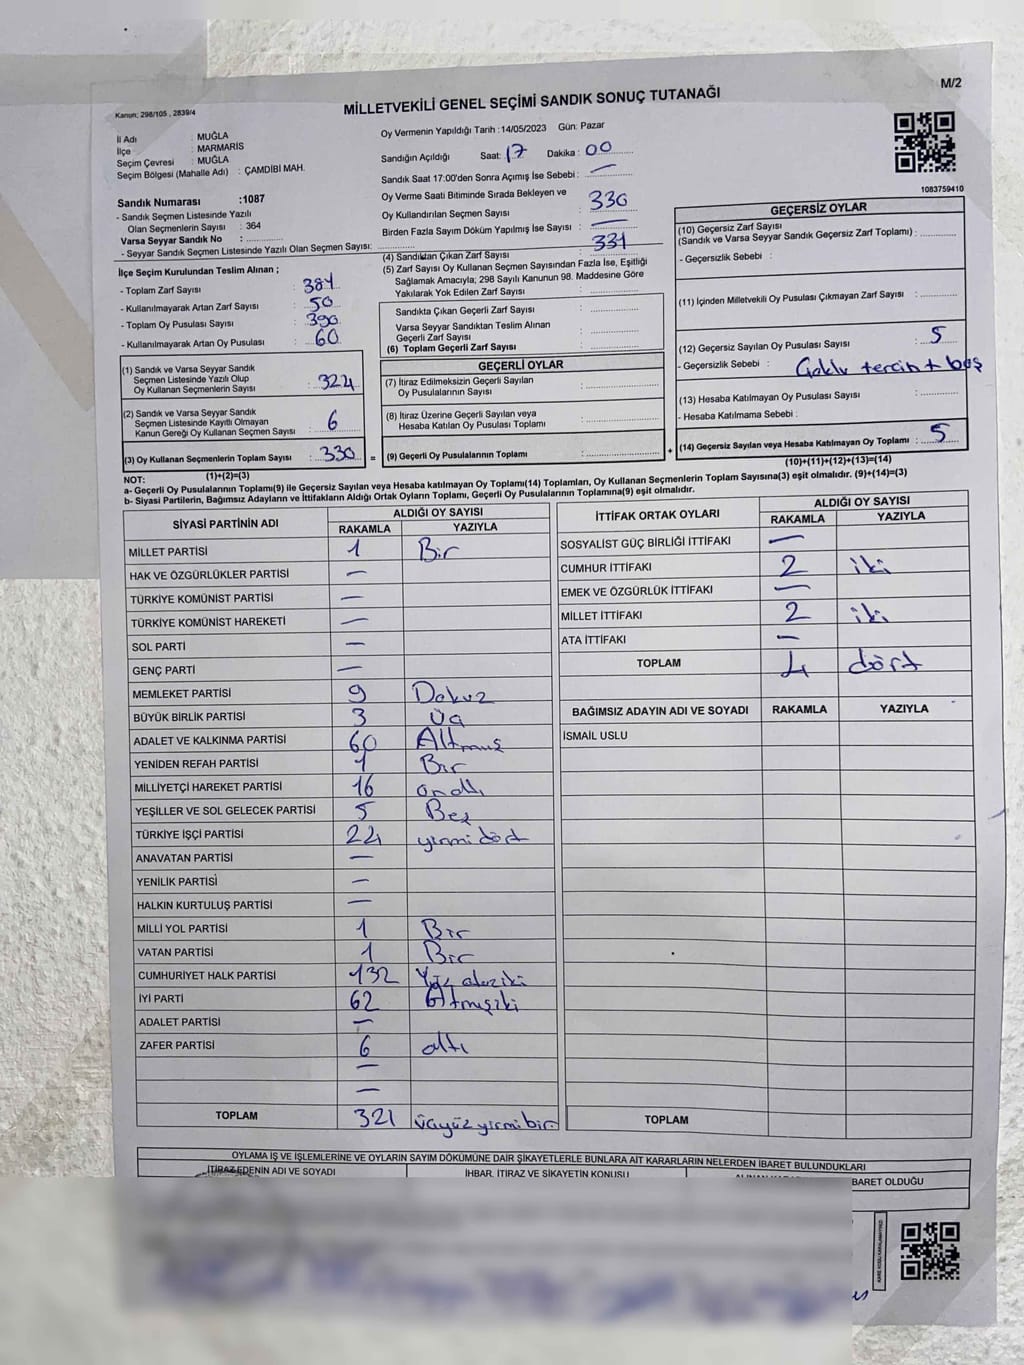 M/2
Kanun: 298/105 , 2839/4
MİLLETVEKİLİ GENEL SEÇİMİ SANDIK SONUÇ TUTANAĞI
İl Adı : MUĞLA
İlçe : MARMARİS
Seçim Çevresi : MUĞLA
Seçim Bölgesi (Mahalle Adı) : ÇAMDİBİ MAH.
Sandık Numarası :1087
- Sandık Seçmen Listesinde Yazılı
Olan Seçmenlerin Sayısı : 364
Varsa Seyyar Sandık No :
- Seyyar Sandık Seçmen Listesinde Yazılı Olan Seçmen Sayısı:
Oy Vermenin Yapıldığı Tarih :14/05/2023 Gün: Pazar
Sandığın Açıldığı Saat: 17 Dakika : 00
Sandık Saat 17:00'den Sonra Açımış İse Sebebi : —
Oy Verme Saati Bitiminde Sırada Bekleyen ve
Oy Kullandırılan Seçmen Sayısı : 330
Birden Fazla Sayım Döküm Yapılmış İse Sayısı : —
1083759410
İlçe Seçim Kurulundan Teslim Alınan ;
- Toplam Zarf Sayısı : 381
- Kullanılmayarak Artan Zarf Sayısı : 50
- Toplam Oy Pusulası Sayısı : 390
- Kullanılmayarak Artan Oy Pusulası : 60
(1) Sandık ve Varsa Seyyar Sandık
Seçmen Listesinde Yazılı Olup
Oy Kullanan Seçmenlerin Sayısı : 324
(2) Sandık ve Varsa Seyyar Sandık
Seçmen Listesinde Kayıtlı Olmayan
Kanun Gereği Oy Kullanan Seçmen Sayısı : 6
(3) Oy Kullanan Seçmenlerin Toplam Sayısı : 330
(1)+(2)=(3)
(4) Sandıktan Çıkan Zarf Sayısı : 331
(5) Zarf Sayısı Oy Kullanan Seçmen Sayısından Fazla İse, Eşitliği
Sağlamak Amacıyla; 298 Sayılı Kanunun 98. Maddesine Göre
Yakılarak Yok Edilen Zarf Sayısı :
Sandıkta Çıkan Geçerli Zarf Sayısı :
Varsa Seyyar Sandıktan Teslim Alınan
Geçerli Zarf Sayısı :
(6) Toplam Geçerli Zarf Sayısı :
GEÇERLİ OYLAR
(7) İtiraz Edilmeksizin Geçerli Sayılan
Oy Pusulasının Sayısı :
(8) İtiraz Üzerine Geçerli Sayılan veya
Hesaba Katılan Oy Pusulası Toplamı :
= (9) Geçerli Oy Pusulalarının Toplamı : +
GEÇERSİZ OYLAR
(10) Geçersiz Zarf Sayısı
(Sandık ve Varsa Seyyar Sandık Geçersiz Zarf Toplamı) :
- Geçersizlik Sebebi :
(11) İçinden Milletvekili Oy Pusulası Çıkmayan Zarf Sayısı :
(12) Geçersiz Sayılan Oy Pusulası Sayısı : 5
- Geçersizlik Sebebi : tercih + boş
(13) Hesaba Katılmayan Oy Pusulası Sayısı :
- Hesaba Katılmama Sebebi :
(14) Geçersiz Sayılan veya Hesaba Katılmayan Oy Toplamı : 5
(10)+(11)+(12)+(13)=(14)
NOT:
a- Geçerli Oy Pusulalarının Toplamı(9) ile Geçersiz Sayılan veya Hesaba katılmayan Oy Toplamı(14) Toplamları, Oy Kullanan Seçmenlerin Toplam Sayısına(3) eşit olmalıdır. (9)+(14)=(3)
b- Siyasi Partilerin, Bağımsız Adayların ve İttifakların Aldığı Ortak Oyların Toplamı, Geçerli Oy Pusulalarının Toplamına(9) eşit olmalıdır.
SİYASİ PARTİNİN ADI ALDIĞI OY SAYISI
RAKAMLA YAZIYLA
MİLLET PARTİSİ 1 Bir
HAK VE ÖZGÜRLÜKLER PARTİSİ —
TÜRKİYE KOMÜNİST PARTİSİ —
TÜRKİYE KOMÜNİST HAREKETİ —
SOL PARTİ —
GENÇ PARTİ —
MEMLEKET PARTİSİ 9 Dokuz
BÜYÜK BİRLİK PARTİSİ 3 Üç
ADALET VE KALKINMA PARTİSİ 60 Altmış
YENİDEN REFAH PARTİSİ 1 Bir
MİLLİYETÇİ HAREKET PARTİSİ 16 onaltı
YEŞİLLER VE SOL GELECEK PARTİSİ 5 Beş
TÜRKİYE İŞÇİ PARTİSİ 24 yirmi dört
ANAVATAN PARTİSİ —
YENİLİK PARTİSİ —
HALKIN KURTULUŞ PARTİSİ —
MİLLİ YOL PARTİSİ 1 Bir
VATAN PARTİSİ 1 Bir
CUMHURİYET HALK PARTİSİ 132 Yüz otuziki
İYİ PARTİ 62 Altmışiki
ADALET PARTİSİ —
ZAFER PARTİSİ 6 altı
—
—
TOPLAM 321 üçyüz yirmi bir
İTTİFAK ORTAK OYLARI ALDIĞI OY SAYISI
RAKAMLA YAZIYLA
SOSYALİST GÜÇ BİRLİĞİ İTTİFAKI —
CUMHUR İTTİFAKI 2 iki
EMEK VE ÖZGÜRLÜK İTTİFAKI —
MİLLET İTTİFAKI 2 iki
ATA İTTİFAKI —
TOPLAM 4 dört
BAĞIMSIZ ADAYIN ADI VE SOYADI RAKAMLA YAZIYLA
İSMAİL USLU
TOPLAM
OYLAMA İŞ VE İŞLEMLERİNE VE OYLARIN SAYIM DÖKÜMÜNE DAİR ŞİKAYETLERLE BUNLARA AİT KARARLARIN NELERDEN İBARET BULUNDUKLARI
İTİRAZ EDENİN ADI VE SOYADI İHBAR, İTİRAZ VE ŞİKAYETİN KONUSU BARET OLDUĞU